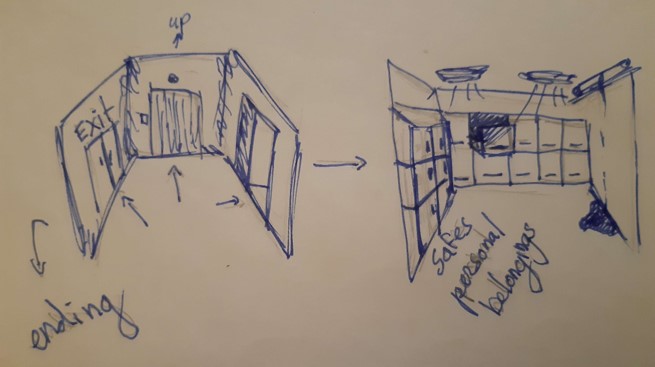 up
Exit
ending
Safes
personal
belongings